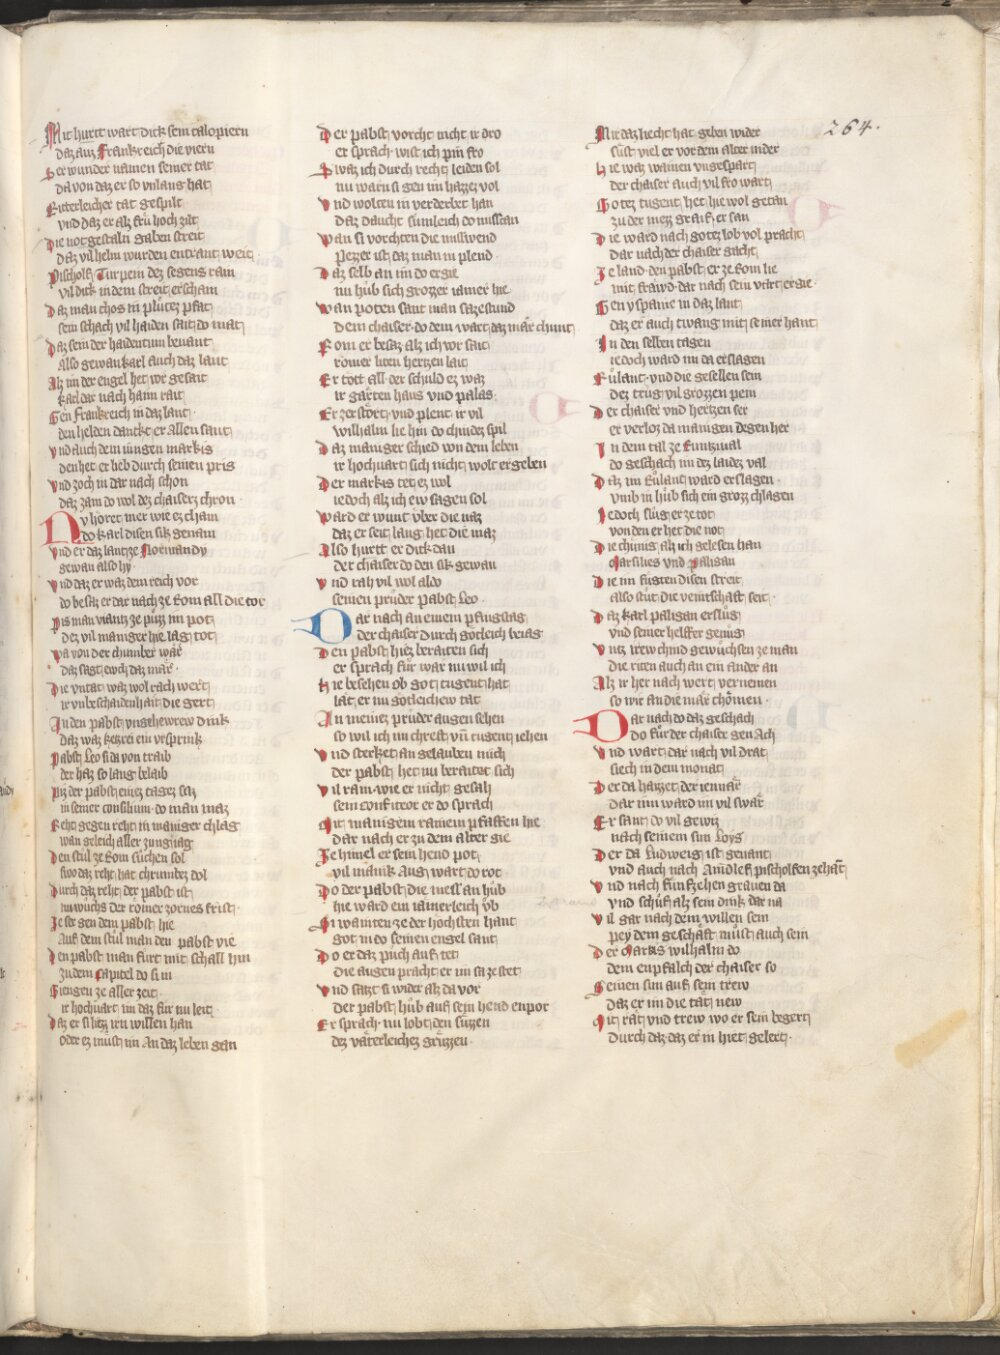 264.
Mit hurtt wart dick sein calopiern
daz auz Frankreich die viern
Per wunder namen seiner tat
da von daz er so unlang hat
Ritterleicher tat gespilt
vnd daz er alz frů hoch zilt
Die notgestaln gaben streit
daz vilhelm wurden entrant weit
Pischolf Turpein dez segens rain
vil dick in dem streit erschain
Daz man chos in plůtez pfat
sein schach vil haiden sait do mat
Daz sein der haidentum benant
Also gewan karl auch daz lant
Alz im der engel het vor gesait
karl dar nach haim rait
Gen Frankreich in daz lant
den helden danckt er Allen sant
Vnd auch dem iungen markis
den het er lieb durch seinen pris
Vnd zoch in dar nach schon
daz zam do wol dez chaiserz chron
Nv horet mer wie ez cham
do karl disen sik genam
Vnd er daz lant ze Normandy
gewan also hy
Vnd daz er waz dem reich vor
do besaz er dar nach ze Rom all die tor
Pis man viantz ze půzz im pot
dez vil maniger hie lag tot
Wa von der chumber wår
daz sagt ewch daz mår
Die vntat waz wol rach wert
ir vnbeschaidenhait die gert
In den pabst vngehewrew dink
daz waz ketzrei ein vrsprink
Pabst Leo si da von traib
der haz so lang belaib
Vntz der pabst eines tagez saz
in seiner consilium do man maz
Reht gegen reht in maniger chlag
wan geleich aller zungn ag
Den stůl ze Rom sůchen sol
swo daz reht hat chrumbez hol
Durch daz reht der pabst ist
nu wůchs der romer zornes frist
Je ser gen dem pabst hie
Auf dem stůl man den pabst vie
Den pabst man fůrt mit schall hin
zu dem kapitel do si in
Giengen ze aller zeit
ir hochuart im daz fůr im leit
Daz er si liez irn willen han
oder ez můst im An daz leben gan
Der pabst vorcht nicht ir dro
er sprach wist ich pin fro
Swaz ich durch recht leiden sol
nu warn si gen im hazzez vol
Vnd wolten in verderbet han
daz daucht sumleich do missan
Wan si vorchten die misswend
Pezzer ist daz man in plend
Daz selb an im do ergie
nu hůb sich grozzer iamer hie
Wan poten sant man sazestund
dem chaiser do dem wart daz mår chunt
Rom er besaz alz ich vor sait
romer liten hertzen lait
Er tott all der schuld ez waz
ir garten haus vnd palas
Er zerstort vnd plent ir vil
wilhalm lie hin do chindez spil
Daz maniger schied von dem leben
ir hochuart sich nicht wolt ergeben
Der markis tet ez wol
iedoch alz ich ew sagen sol
Ward er wunt vber die naz
daz er seit lang het die maz
Also hurtt er dick dan
der chaiser do den sik gewan
Vnd rah vil wol aldo
seinen pruder pabst Leo
Dar nach an einem pfincztag
der chaiser durch gotleich beiag
Den pabst hiez beraiten sich
er sprach fůr war nu wil ich
Hie besehen ob got tugent hat
lat er im gotleichew tat
An meinez pruder augen sehen
so wil ich im christ vn tugent iehen
Vnd sterket an gelauben mich
der pabst het nu beraitet sich
Vil rain wie er nicht gesah
sein confiteor er do sprach
Mit manigem rainem pfaffen hie
dar nach er zu dem alter gie
Je himel er sein hend pot
vil manik Aug wart do rot
Do der pabst die mess an hůb
hie ward ein iamerleich ůb
Si wainten ze der hochsten hant
got in do seinen engel sant
Do er daz půch auf tet
die augen pracht er im sa ze stet
Vnd satzt si wider alz da vor
der pabst hůb auf sein hend enpor
Er sprach nu lobt den sůzzen
dez våterleichez grůzzen
Mir daz liecht hat geben wider
sust viel er vor dem alter nider
Hie waz wainen vngespart
der chaiser auch vil fro wart
Gotez tugent het hie wol getan
zu der mezz graif er san
Die ward nach gotez lob vol pracht
dar nach der chaiser gacht
Ze land den pabst er ze Rom lie
mit frawd dar nach sein vart ergie
Gen yspanie in daz lant
daz er auch twang mit seiner hant
In den selben tagen
iedoch ward im da erslagen
Růlant vnd die gesellen sein
dez trůg vil grozzen pein
Der chaiser vnd hertzen ser
er verloz da manigen degen her
In dem tal ze Runtzinal
do geschach im dez laidez val
Daz im Růlant ward erslagen
vmb in hůb sich ein grozz chlagen
Jedoch slůg er ze tot
von den er het die not
Die chůnig alz ich gelesen han
Marsilies vnd Paligan
Die im fugten disen streit
also stůt die veintschaft seit
Daz karl paligan erslůg
vnd seiner helffer genůg
Vntz irew chind gewůchsen ze man
die riten auch an ein ander an
Alz ir her nach wert vernemen
so wir an die mår chomen
Dar nach do daz geschach
do fůr der chaiser gen Ach
Vnd wart dar nach vil drat
siech in dem monat
Der da haizzet der ienuår
dar inn ward im vil swår
Er sant do vil gewiz
nach seinem sun Loys
Der da Ludweig ist genant
vnd auch nach Aindlef pischolfen zehant
Vnd nach funfzehen grauen da
vnd schůf alz sein dink dar na
Vil gar nach dem willen sein
pey dem geschaft můst auch sein
Der Markis wilhalm do
dem enpfalch der chaiser so
Seinen sun auf sein trew
daz er im die tåt new
Mit rat vnd trew wo er sein begert
durch daz daz er in hiet gelert